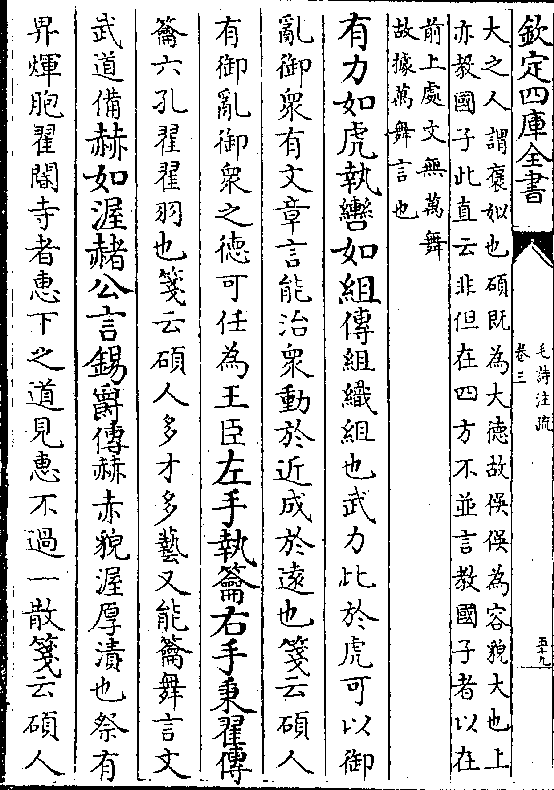 欽定四庫全書
毛詩注疏
卷三
五十九
大之人謂褒姒也碩既為大德故俁俁為容貌大也上
亦教國子此直云非但在四方不並言教國子者以在
前上處文無萬舞
故據萬舞言也
有力如虎執轡如組傳組織組也武力比於虎可以御
亂御衆有文章言能治衆動於近成於逺也箋云碩人
有御亂御衆之徳可任為王臣左手執籥右手秉翟傳
籥六孔翟翟羽也箋云碩人多才多藝又能籥舞言文
武道備赫如渥赭公言錫爵傳赫赤貌渥厚漬也祭有
畀煇胞翟閽寺者惠下之道見惠不過一散箋云碩人